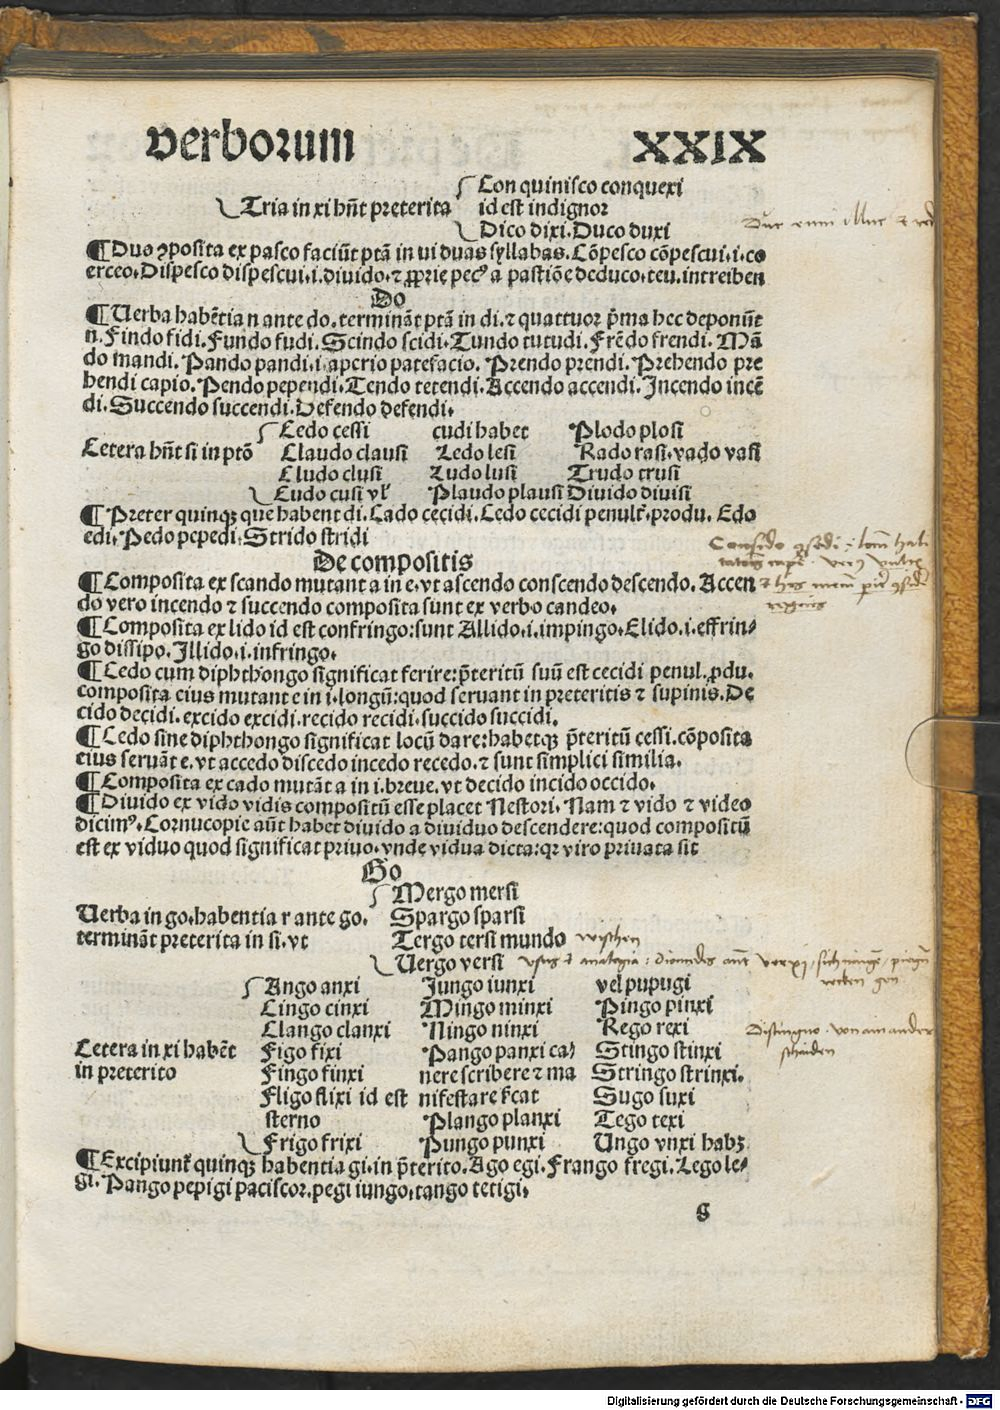 verborum XXIX
Con quinisco conquexi
Tria in xi hñt preterita id est indignor
Dico dixi. Duco duxi
¶ Duo ꝯposita ex pasco faciũt ptã in ui duas syllabas. Cõpesco cõpescui. i. co
erceo. Dispesco dispescui. i. diuido. ⁊ ꝓprie pecꝰ a pastiõe deduco. teu. intreiben
Do
¶ Uerba habẽtia n ante do. terminãt ptã in di. ⁊ quattuor p̃ma hec deponũt
n. Findo fidi. Fundo fudi. Scindo scidi. Tundo tutudi. Frẽdo frendi. Mã
do mandi. Pando pandi. i. aperio patefacio. Prendo prendi. Prehendo pre
hendi capio. Pendo pependi. Tendo tetendi. Accendo accendi. Incendo incẽ
di. Succendo succendi. Defendo defendi.
Cedo cessi cudi habet Plodo plosi
Cetera hñt si in ptõ Claudo clausi Ledo lesi Rado rasi. vado vasi
Cludo clusi Ludo lusi Trudo trusi
Cudo cusi vł Plaudo plausi Diuido diuisi
¶ Preter quinqꝫ que habent di. Cado cecidi. Cedo cecidi penult̃. produ. Edo
edi. Pedo pepedi. Strido stridi
De compositis
¶ Composita ex scando mutant a in e. vt ascendo conscendo descendo. Accen
do vero incendo ⁊ succendo composita sunt ex verbo candeo.
¶ Composita ex lido id est confringo: sunt Allido. i. impingo. Elido. i. effrin⸗
go dissipo. Illido. i. infringo.
¶ Cedo cum diphthongo significat ferire: p̃teritũ suũ est cecidi penul. ꝓdu.
composita eius mutant e in i. longũ: quod seruant in preteritis ⁊ supinis. De
cido decidi. excido excidi. recido recidi. succido succidi.
¶ Cedo sine diphthongo significat locũ dare: habetqꝫ p̃teritũ cessi. cõposita
eius seruãt e. vt accedo discedo incedo recedo. ⁊ sunt simplici similia.
¶ Composita ex cado mutãt a in i. breue. vt decido incido occido.
¶ Diuido ex vido vidis compositũ esse placet Nestori. Nam ⁊ vido ⁊ video
dicimꝰ. Cornucopie aũt habet diuido a diuiduo descendere: quod compositũ
est ex viduo quod significat priuo. vnde vidua dicta: qꝛ viro priuata sit
Go
Mergo mersi
Uerba in go. habentia r ante go. Spargo sparsi
terminãt preterita in si. vt Tergo tersi mundo wischen
Uergo versi
Ango anxi Jungo iunxi vel pupugi
Cingo cinxi Mingo minxi Pingo pinxi
Clango clanxi Ningo ninxi Rego rexi
Cetera in xi habẽt Figo fixi Pango panxi ca⸗ Stingo stinxi
in preterito Fingo finxi nere scribere ⁊ ma Stringo strinxi.
Fligo flixi id est nifestare ẜcat Sugo suxi
sterno Plango planxi Tego texi
Frigo frixi Pungo punxi Ungo vnxi habꝫ
Distinguo. von ain ander
schaiden
¶ Excipiunt̃ quinqꝫ habentia gi. in p̃terito. Ago egi. Frango fregi. Lego le⸗
gi. Pango pepigi paciscor. pegi iungo. tango tetigi.
g
Digitalisierung gefördert durch die Deutsche Forschungsgemeinschaft - DFG